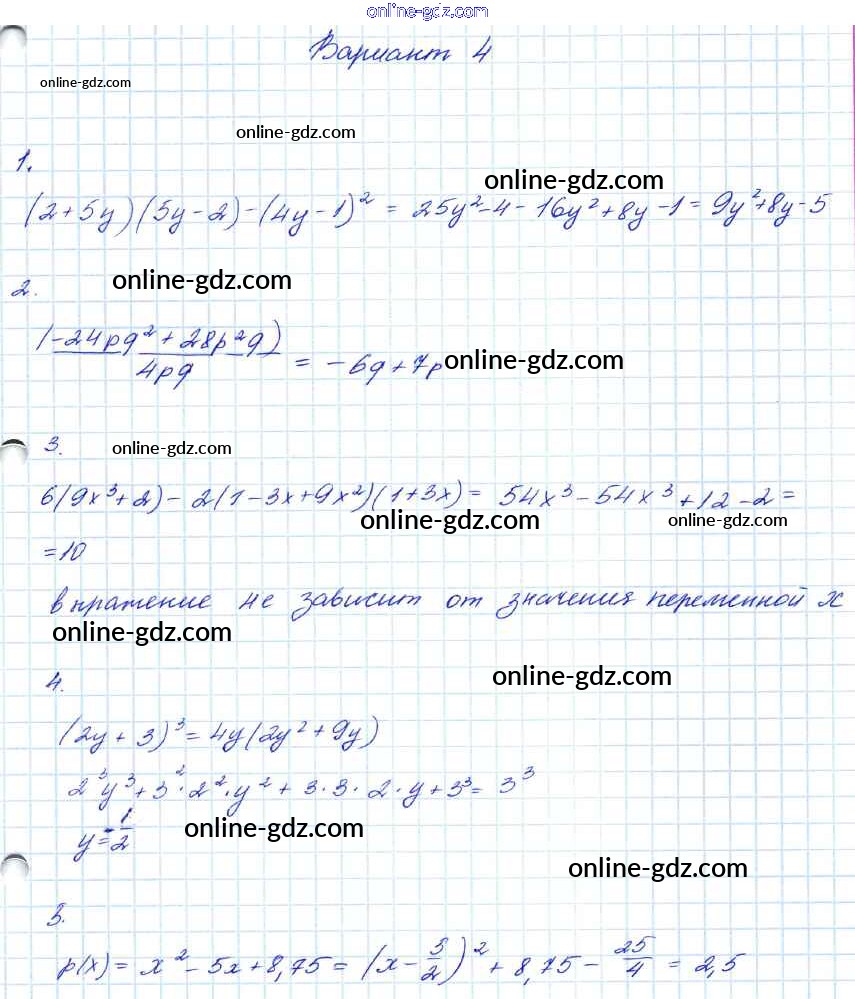 online-gdz.com
Вариант 4
online-gdz.com
online-gdz.com
1.
online-gdz.com
(2+5y)(5y-2)-(4y-1)² = 25y²-4-16y²+8y-1=9y²+8y-5
2.
online-gdz.com
(-24pq²+28p²q)
4pq
= -6q+7p
online-gdz.com
3.
online-gdz.com
6(9x³+2)-2(1-3x+9x²)(1+3x)= 54x³-54x³+12-2=
online-gdz.com
online-gdz.com
=10
выражение не зависит от значения переменной x
online-gdz.com
online-gdz.com
4.
(2y+3)³=4y(2y²+9y)
2³y³+3²·2²·y²+3·3·2·y+3³= 3³
y=-1/2
online-gdz.com
online-gdz.com
5.
p(x)= x²-5x+8,75=(x-5/2)²+8,75-25/4=2,5